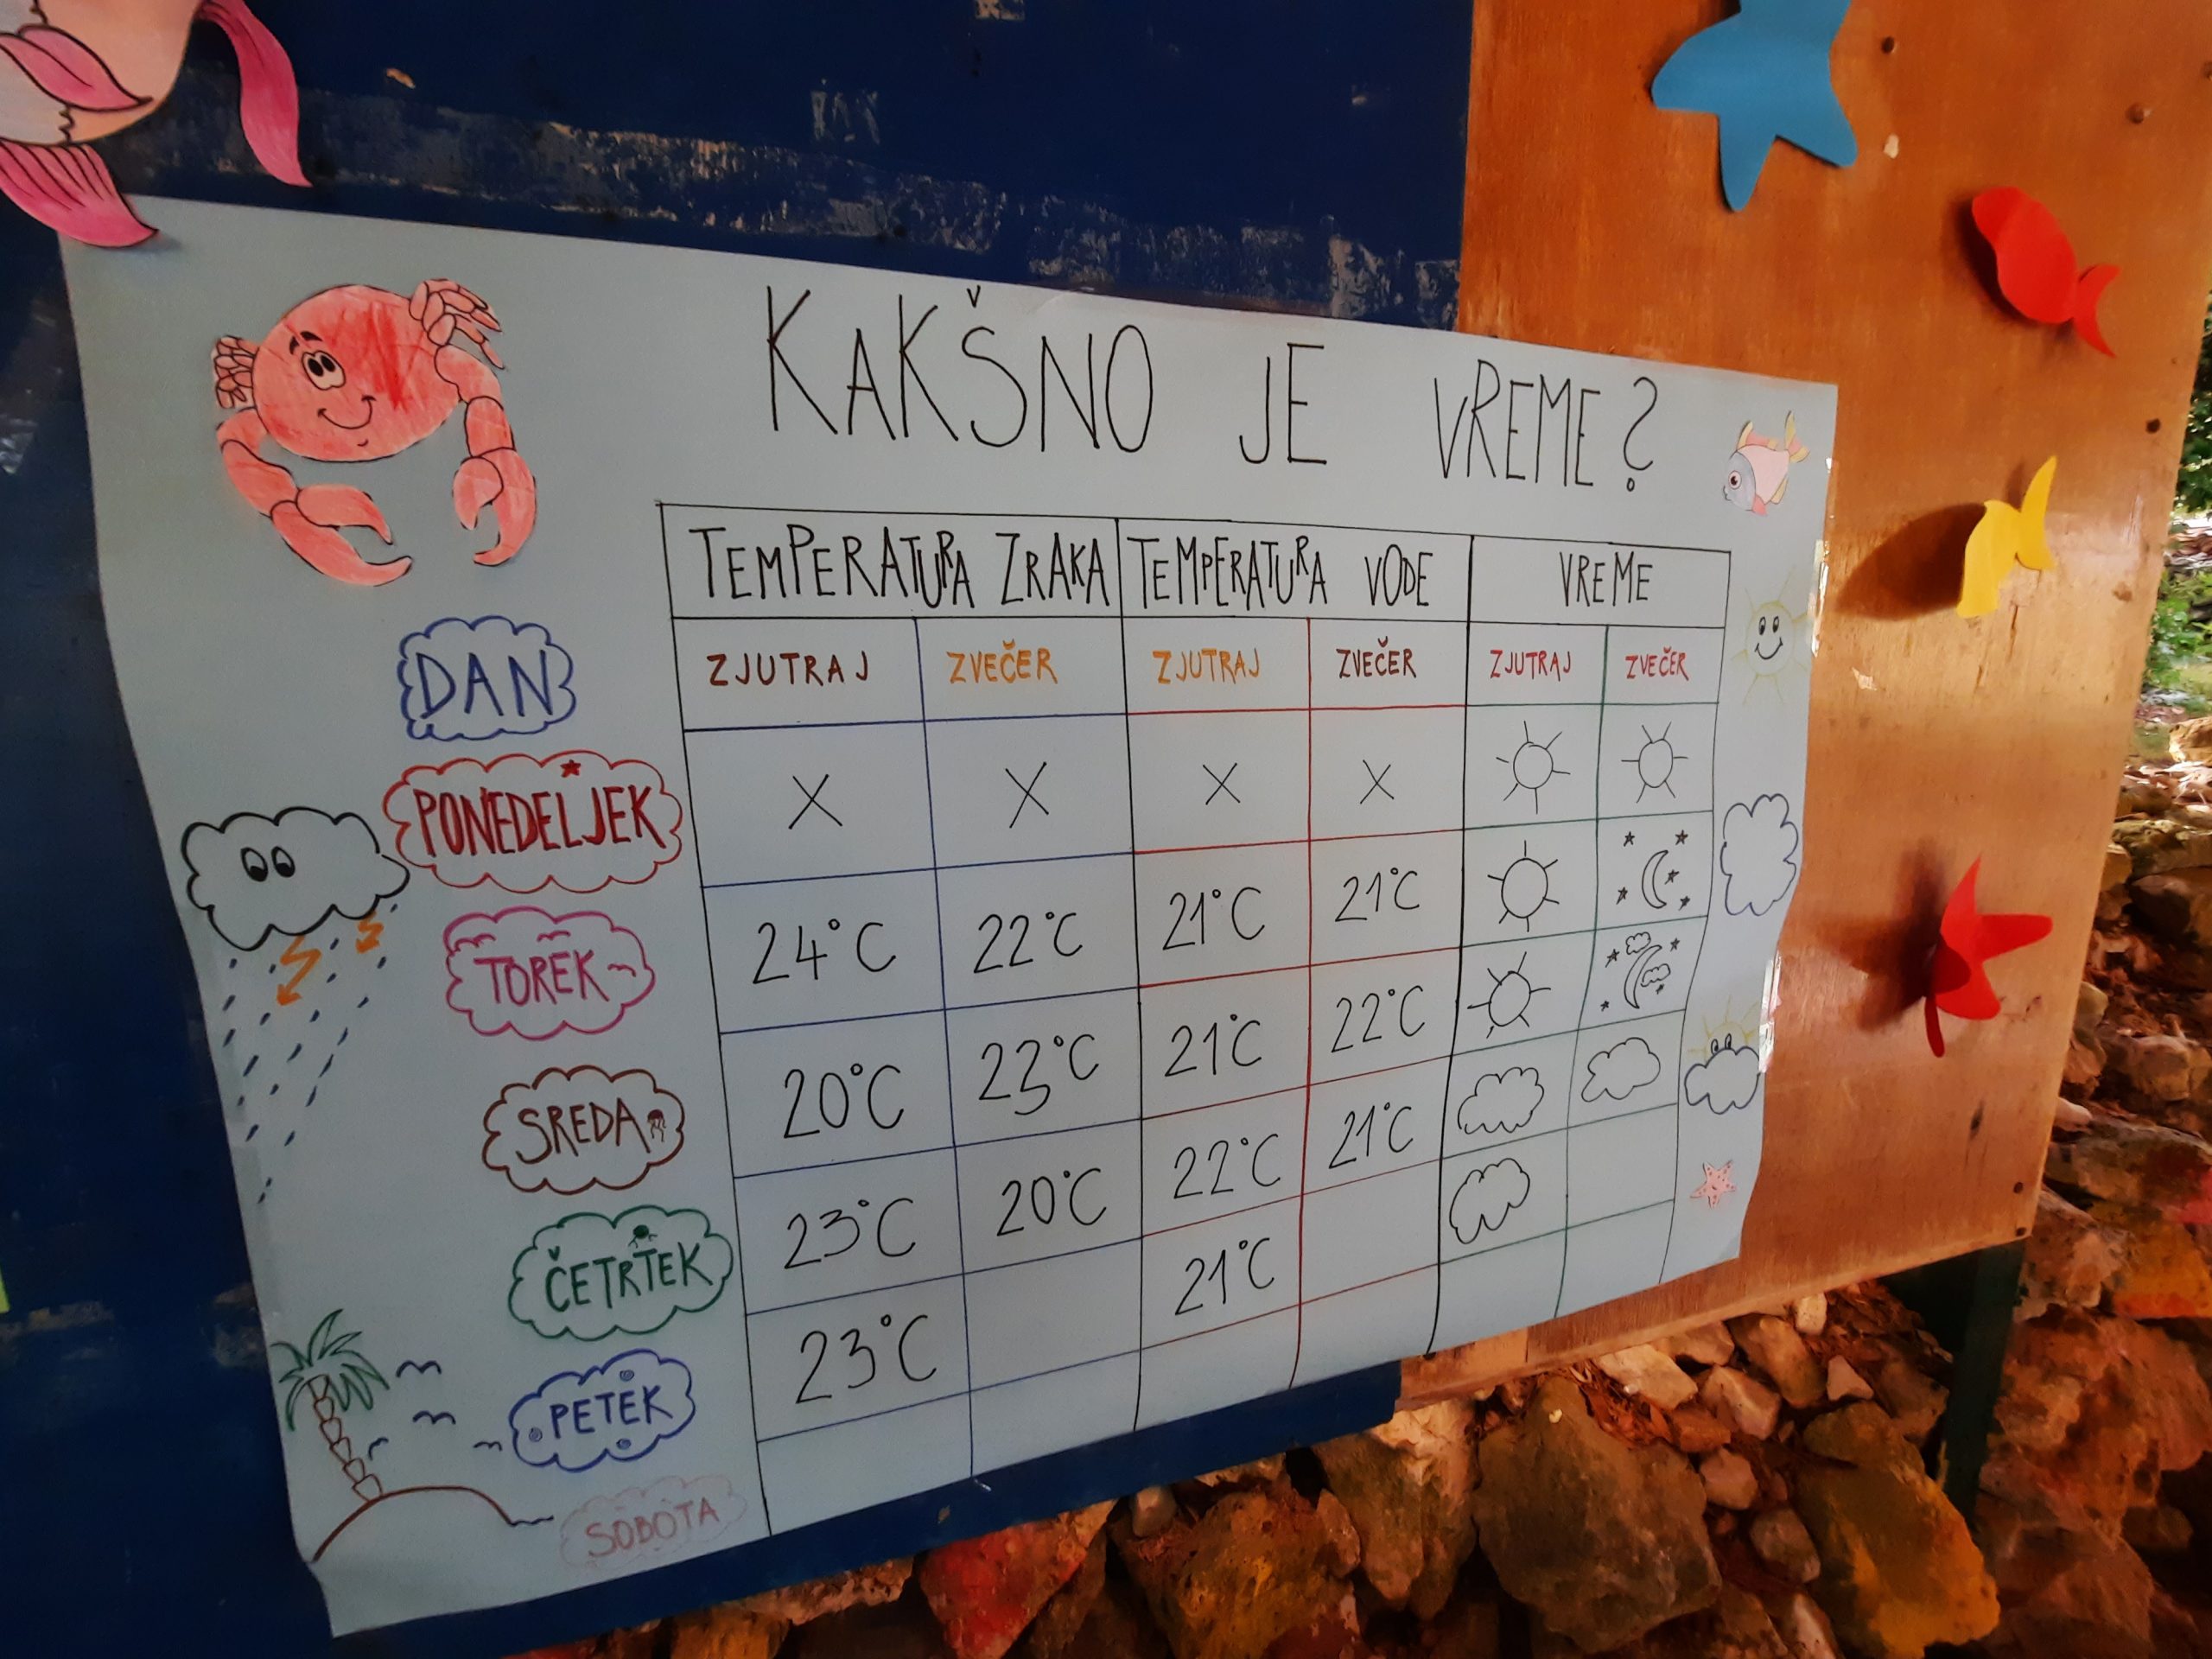 KAKŠNO JE VREME?
TEMPERATURA ZRAKA TEMPERATURA VODE VREME
DAN ZJUTRAJ ZVEČER ZJUTRAJ ZVEČER ZJUTRAJ ZVEČER
PONEDELJEK X X X X
TOREK 24°C 22°C 21°C 21°C
SREDA 20°C 23°C 21°C 22°C
ČETRTEK 23°C 20°C 22°C 21°C
PETEK 23°C 21°C
SOBOTA